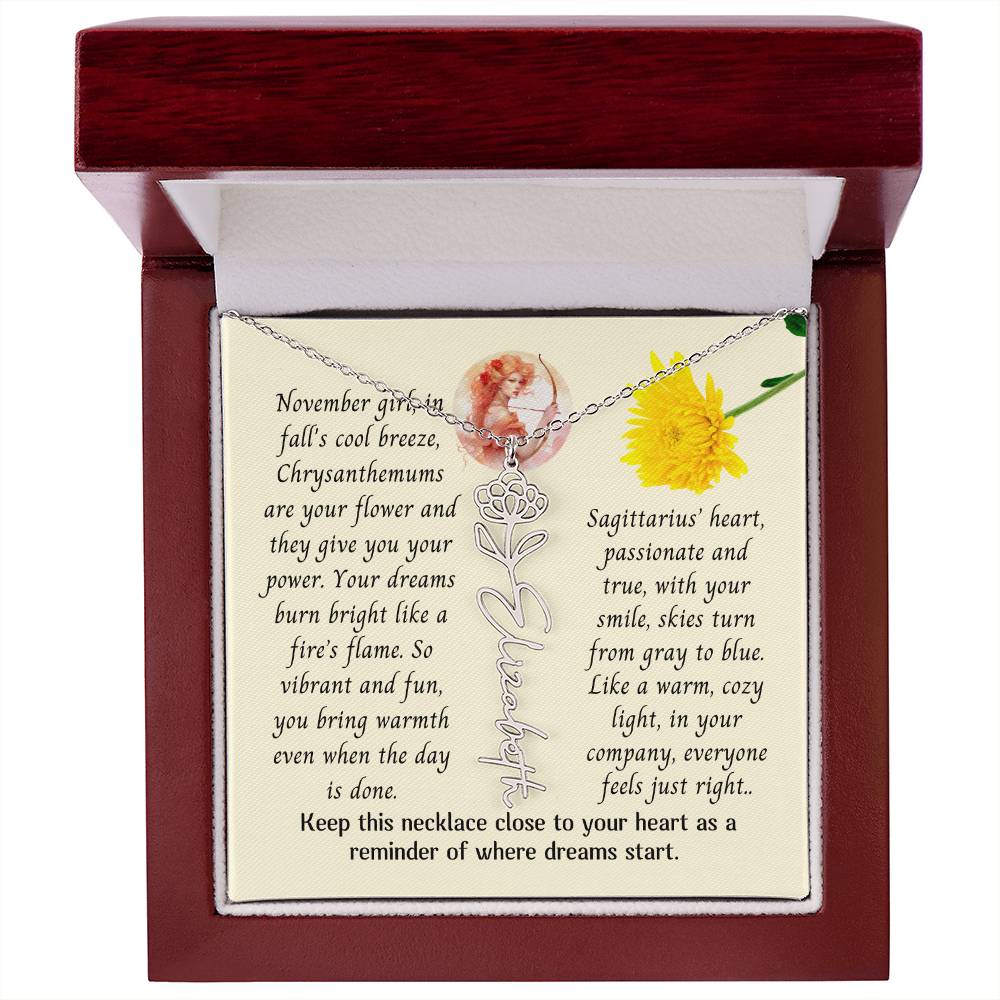 November girl, in
fall's cool breeze,
Chrysanthemums
are your flower and
they give you your
power. Your dreams
burn bright like a
fire's flame. So
vibrant and fun,
you bring warmth
even when the day
is done.
Elizabeth
Sagittarius' heart,
passionate and
true, with your
smile, skies turn
from gray to blue.
Like a warm, cozy
light, in your
company, everyone
feels just right..
Keep this necklace close to your heart as a
reminder of where dreams start.